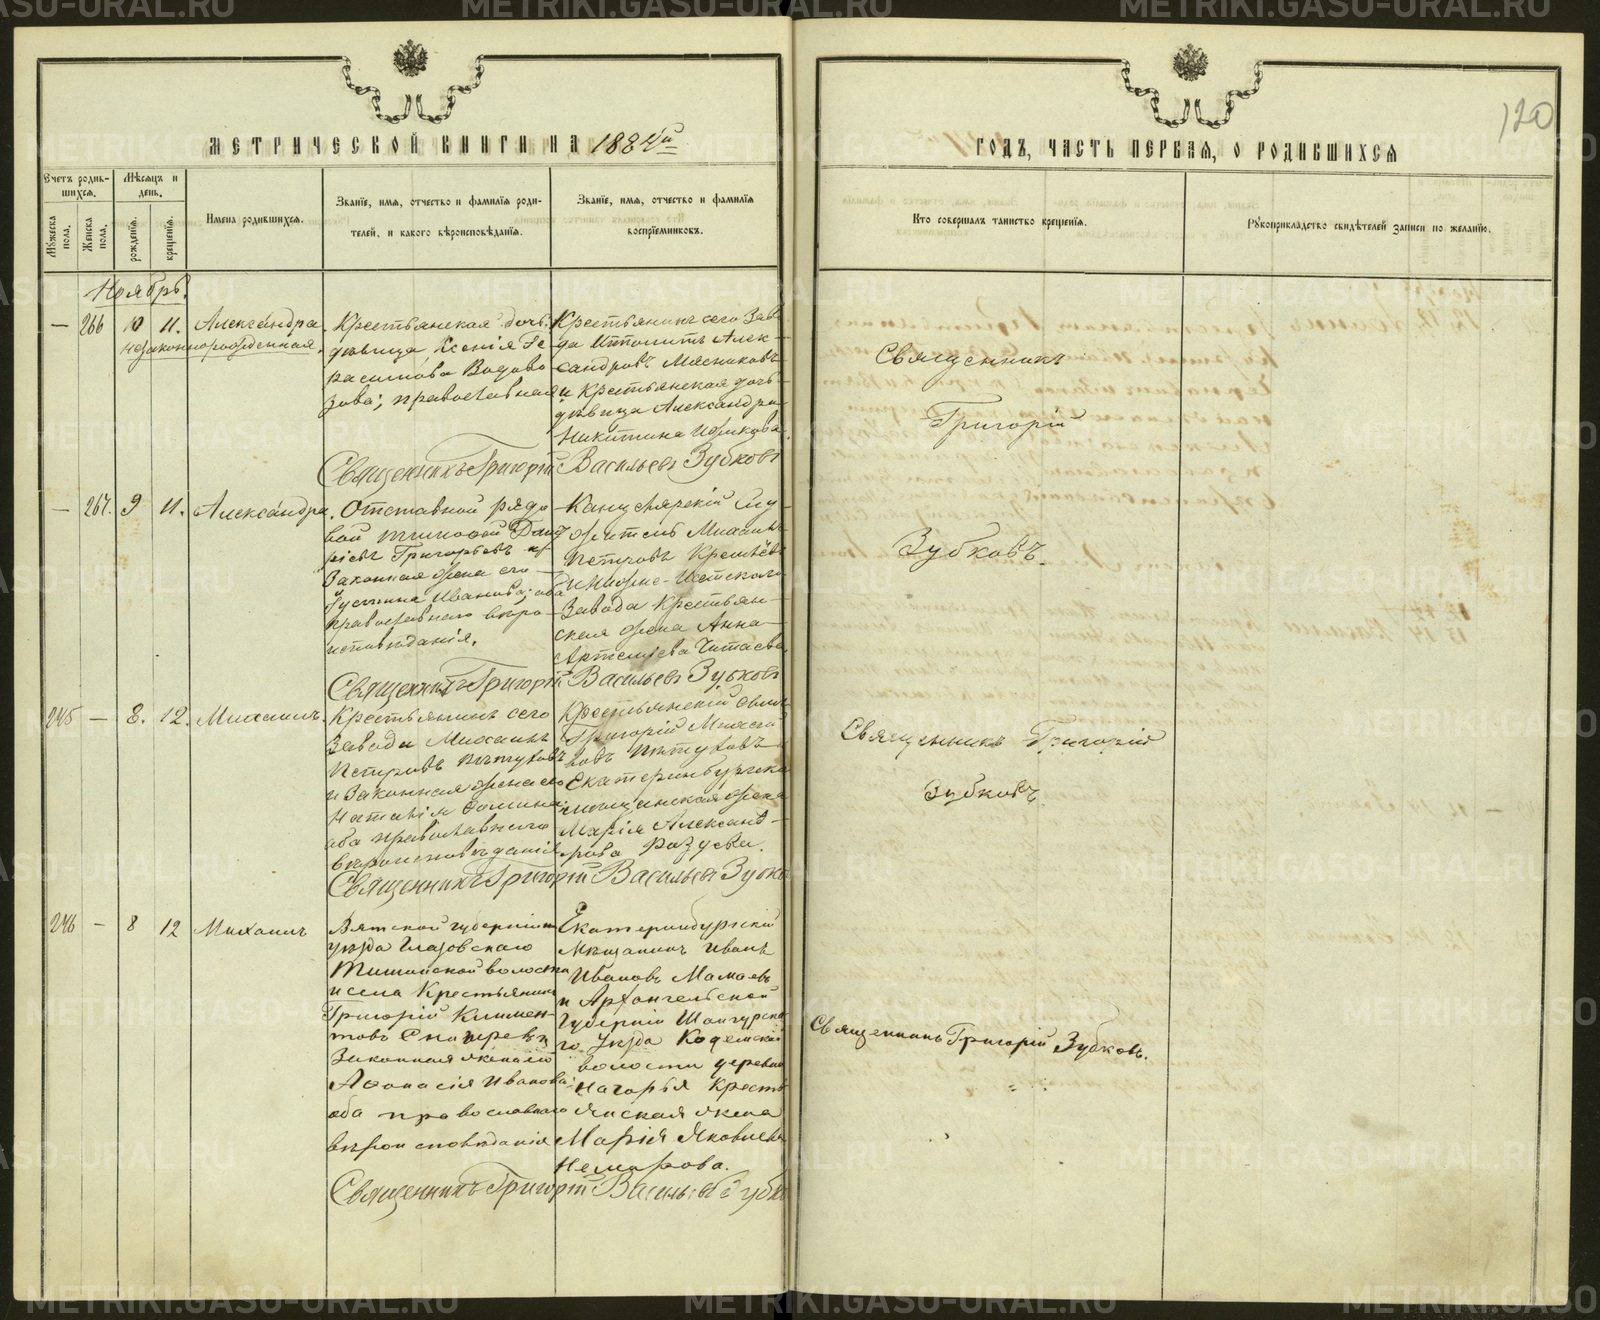 МЕТРИЧЕСКОЙ КНИГИ НА 1884й
ГОДЪ, ЧАСТЬ ПЕРВАЯ, О РОДИВШИХСЯ
120
Счетъ родившихся.
Мѣсяцъ и день.
Мужеска пола.
Женска пола.
рожденія.
крещенія.
Имена родившихся.
Званіе, имя, отчество и фамилія родителей, и какого вѣроисповѣданія.
Званіе, имя, отчество и фамилія воспріемниковъ.
Кто совершалъ таинство крещенія.
Рукоприкладство свидѣтелей записи по желанію.
Ноябрь.
— 266 10 11. Александра
незаконнорожденная.
Крестьянская дочь
дѣвица Ксенія Ге-
расимова Водово-
зова; православная
Крестьянинъ сего Заво-
да Ипполитъ Алек-
сандровъ Мясниковъ
и Крестьянская дочь
дѣвица Александра
Никитина
Священникъ Григорій Васильевъ Зубковъ
Священникъ
Григорій
Зубковъ.
— 267. 9 11. Александра.
Отставной рядо-
вой
Григорьевъ и
законная жена его
Іустина Иванова; оба
православнаго вѣро-
исповѣданія.
Канцелярскій Слу-
житель Михаилъ
Петровъ
и Нижне-Исетскаго
Завода Крестьян-
ская жена Анна
Артемьева
Священникъ Григорій Васильевъ Зубковъ
245 — 8. 12. Михаилъ.
Крестьянинъ сего
Завода Михаилъ
Петровъ Пѣтуховъ
и Законная жена его
Наталія Фомина
оба православнаго
вѣроисповѣданія
Крестьянскій сынъ
Григорій
Пѣтуховъ
Екатеринбургская
мѣщанская жена
Марія Александ-
рова
Священникъ Григорій Васильевъ Зубко
Священникъ Григорій
Зубковъ.
246 — 8 12 Михаилъ
Вятской губерніи
уѣзда Глазовскаго
волости
и села Крестьянинъ
Григорій Климен-
товъ
Законная жена его
Афанасія Иванова;
оба православнаго
вѣроисповѣданія
Екатеринбургскій
Мѣщанинъ Иванъ
Ивановъ Мамаевъ
и Архангельской
Губерніи Шенкурска-
го Уѣзда
волости деревни
Нагорья Кресть-
янская жена
Марія Яковлева
Немирова.
Священникъ Григорій Васильевъ Зубко
Священникъ Григорій Зубковъ.
METRIKI.GASU-URAL.RU